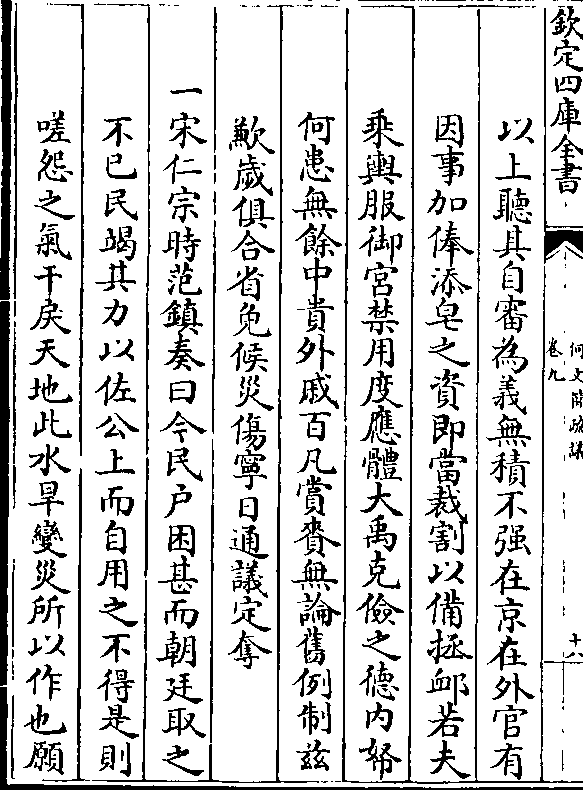 欽定四庫全書
何文簡疏議
卷九
十六
以上聽其自審為義無積不强在京在外官有
因事加俸添皂之資即當裁割以備拯䘏若夫
乘輿服御宮禁用度應體大禹克儉之德内帑
何患無餘中貴外戚百凡賞賚無論舊例制兹
歉歲俱合省免候災傷寧日通議定奪
一宋仁宗時范鎮奏曰今民户困甚而朝廷取之
不已民竭其力以佐公上而自用之不得是則
嗟怨之氣干戾天地此水旱變災所以作也願